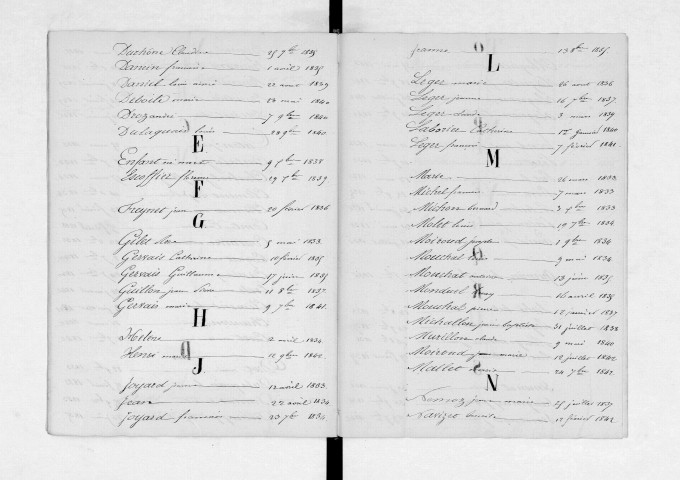 Duchêne Claudine 25 7bre 1835
Damin francois 1 avril 1835
Daniel 22 aout 1839
Deboile marie 28 mai 1840
7 9bre 1840
louis 28 9bre 1840
E
Enfant né mort 9 1838
Geoffier 19 7bre 1839
F
Freynet jean 20 fevrier 1836
G
Gilet 5 mai 1833
Gervais Catherine 10 fevrier 1835
Gervais Guillaume 17 juin 1835
Guillon jean 11 8bre 1837
Gervais marie 9 7bre 1841
H
Hélène 2 avril 1834
Henri 11 9bre 1842
J
Joyard 12 avril 1833
Jean 22 avril 1834
Joyard francois 23 7bre 1834
jeanne 13 8bre 1835
L
Leger marie 26 aout 1836
Léger jeanne 16 7bre 1837
Leger claude 3 mars 1839
Laborier Catherine 15 janvier 1840
Leger francois 7 février 1841
M
Marie 26 mars 1833
Michel francois 7 mars 1833
Michon bernard 3 1833
Molet louis 19 7bre 1834
Moiroud 1 9bre 1834
Mouchal 9 mai 1834
Mouchal 13 juin 1835
Monduel 16 avril 1835
Mouchal pierre 12 janvier 1837
Michallon jean baptiste 31 juillet 1838
Murillon claude 9 mai 1840
Moiroud jean marie 12 juillet 1842
Mallet 24 7bre 1842
N
jean marie 25 juillet 1837
Narizet benoite 12 février 1842